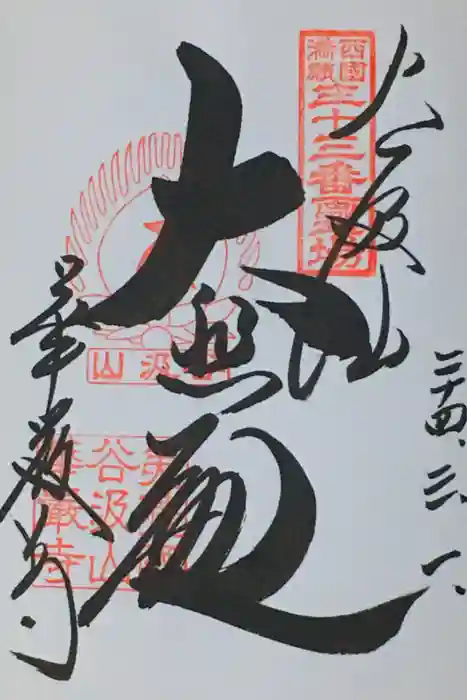 二十四.三.一.
谷汲山
西國
満願
三十三番霊場
大悲殿
谷汲山
美濃國
谷汲山
華嚴寺
華厳寺